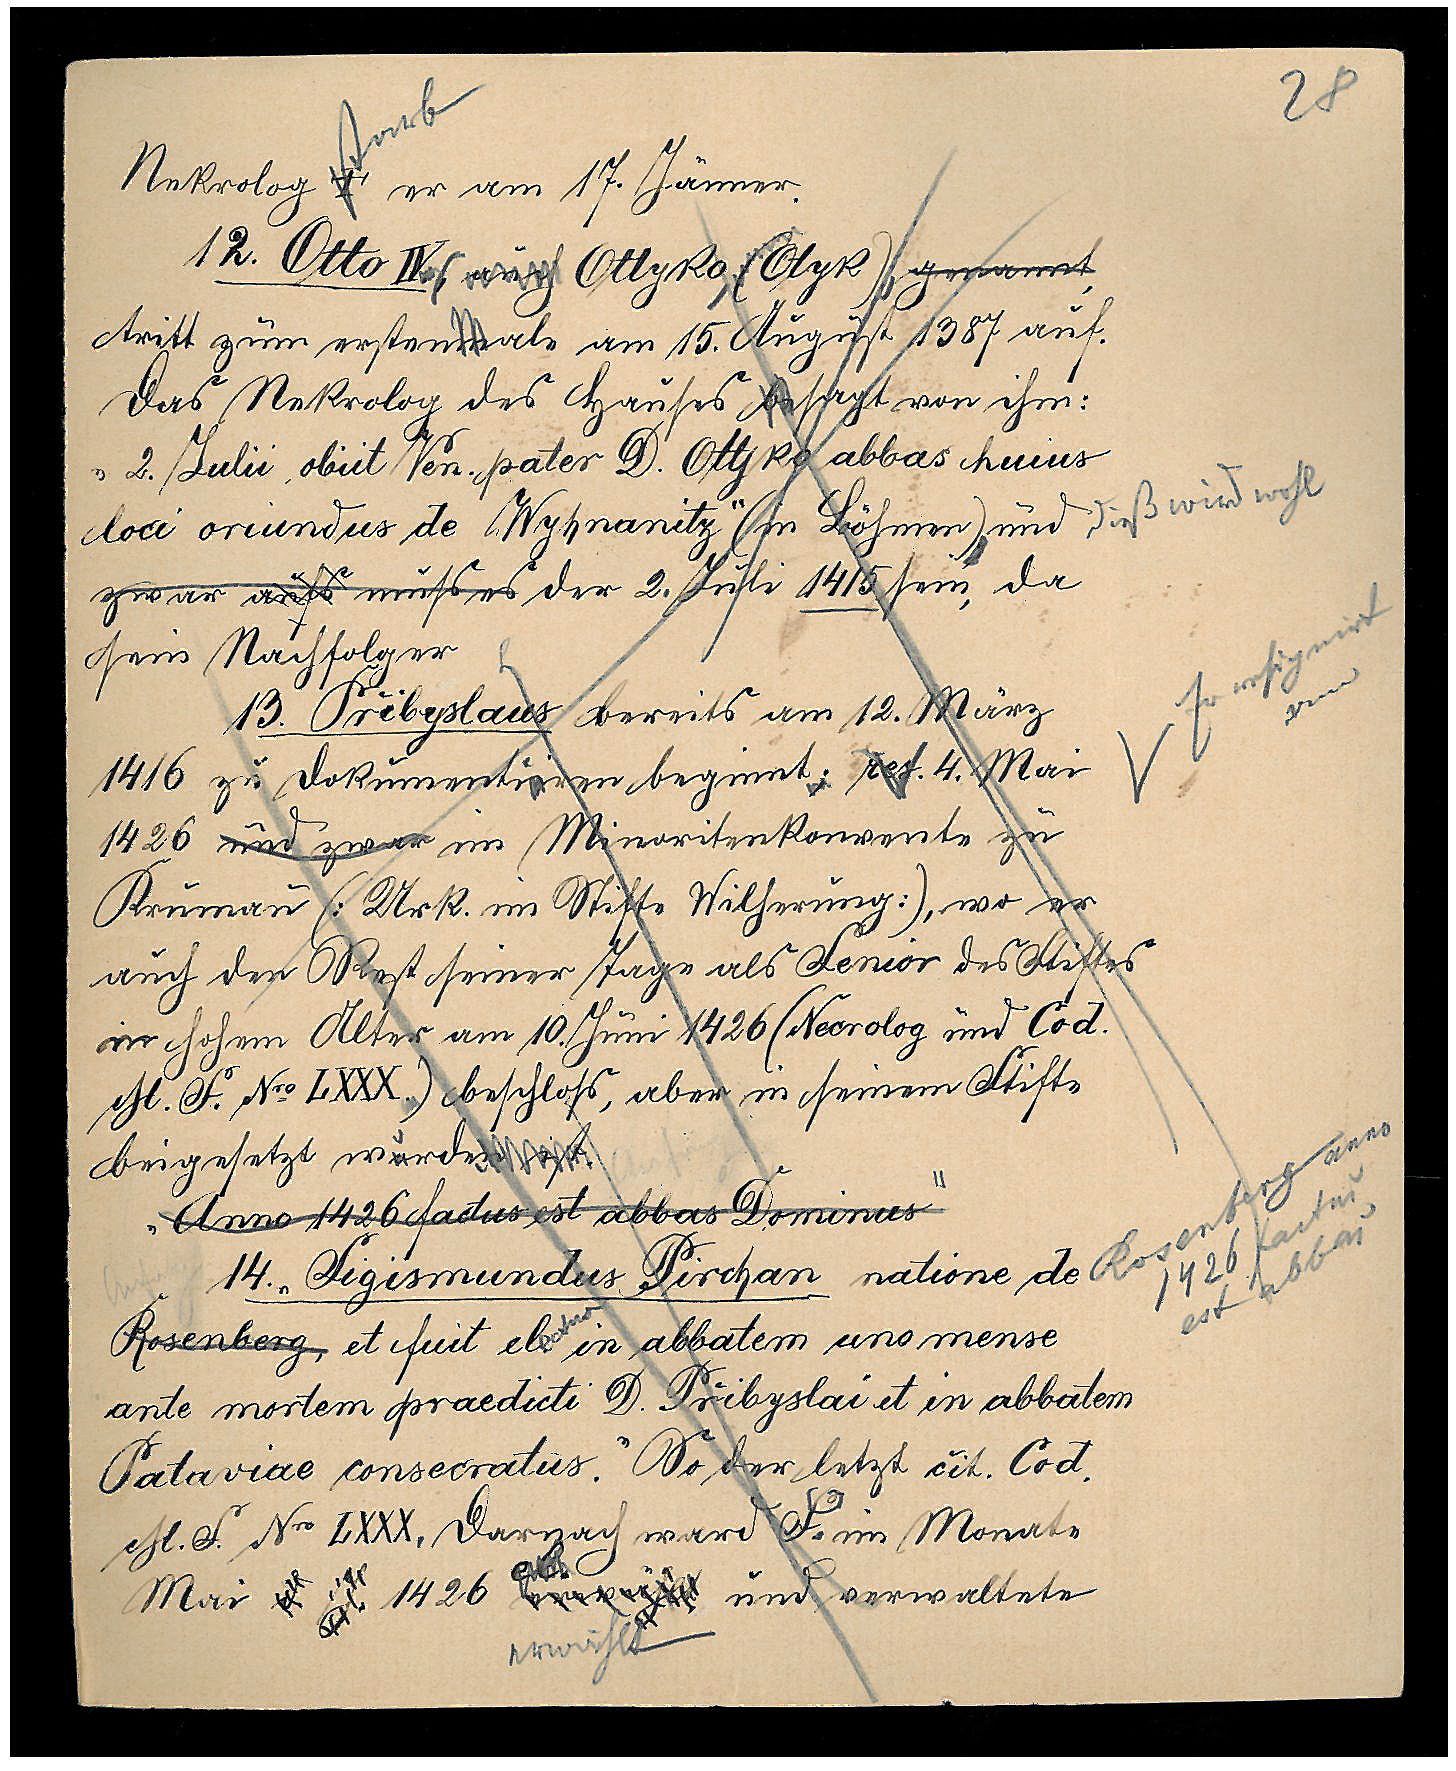 28
starb
Nekrolog † er am 17. Jänner.
12. Otto IV, auch Ottyko, (Otyk), genannt,
tritt zum erstenmale am 15. August 1387 auf.
Das Nekrolog des Hauses besagt von ihm:
„2. Julii obiit Ven. pater D. Ottyko abbas huius
loci oriundus de Wyhnanitz" (in Böhmen) und dieß wird wohl
zwar aufs muss es der 2. Juli 1415 sein, da
sein Nachfolger
13. Přibyslaus bereits am 12. März
Er resignirt
am
1416 zu dokumentiren beginnt; res. 4. Mai
1426 und zwar im Minoritenkonvente zu
Krumau (: Urk. im Stifte Wilhering:), wo er
auch den Rest seiner Tage als Senior des Stiftes
in hohem Alter am 10. Juni 1426 (Necrolog und Cod.
Nro LXXX.) beschloss, aber in seinem Stifte
beigesetzt wurde
„Anno 1426 factus est abbas Dominus"
14. „Sigismundus Pirchan natione de Rosenberg anno
1426 factus
est abbas
Rosenberg, et fuit electus in abbatem uno mense
ante mortem praedicti D. Přibyslai et in abbatem
Pataviae consecratus." So der letzt cit. Cod.
Nro LXXX. Darnach ward S. im Monate
Mai 1426 und verwaltete
erwählt